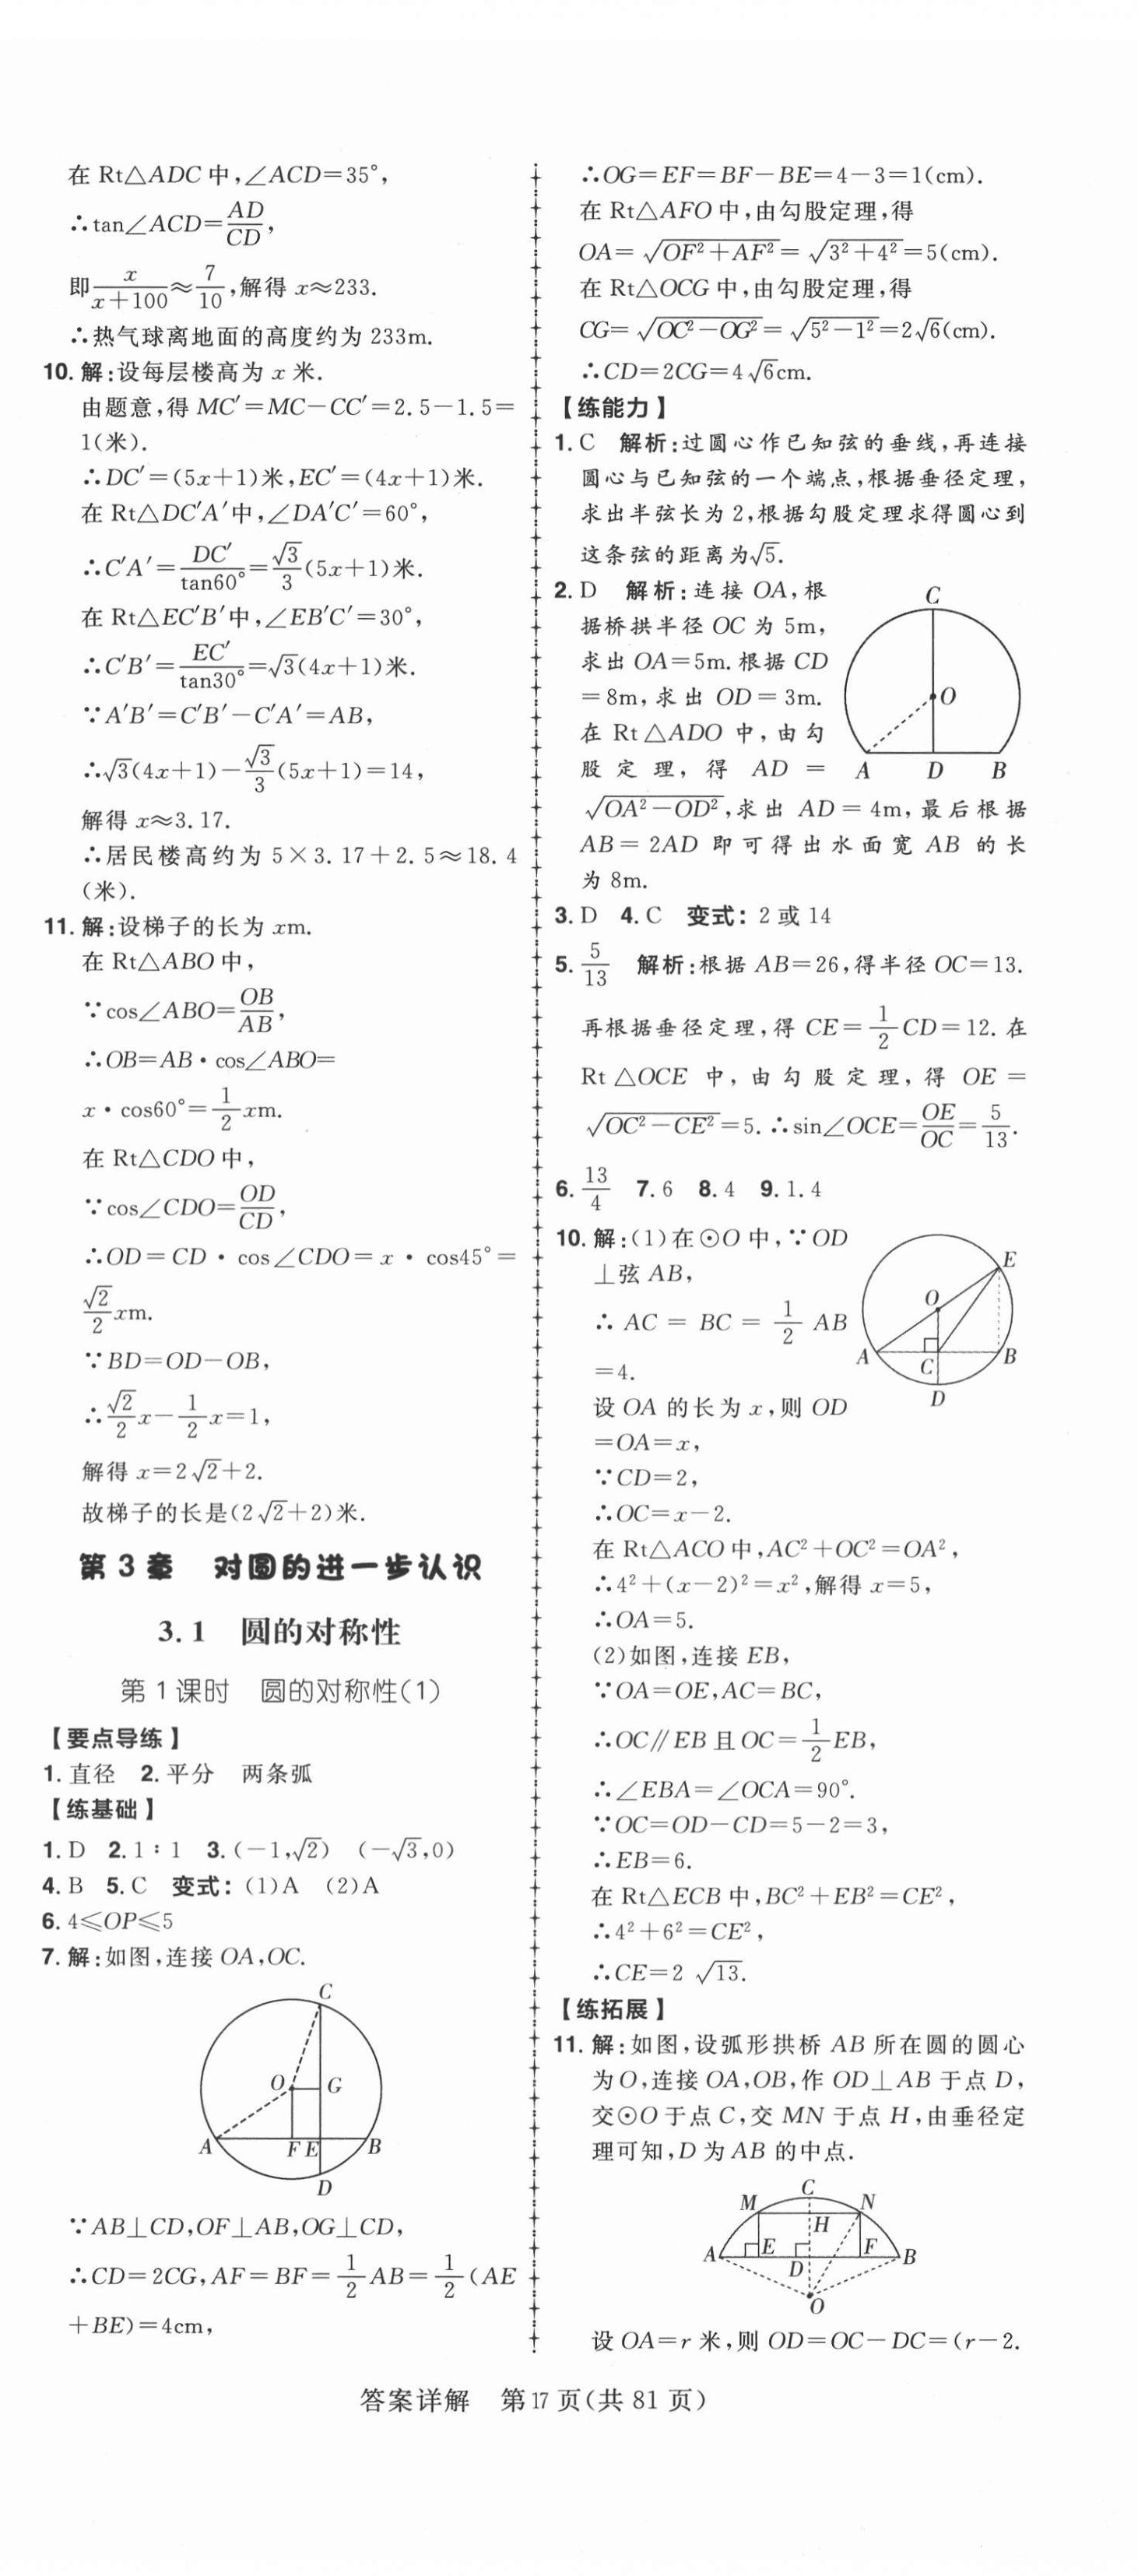 在 Rt△ADC 中,∠ACD=35°,
∴tan∠ACD=AD/CD,
即x/(x+100)≈7/10,解得 x≈233.
∴热气球离地面的高度约为 233m.
10. 解:设每层楼高为 x 米.
由题意,得 MC′=MC−CC′=2.5−1.5=
1(米).
∴DC′=(5x+1)米,EC′=(4x+1)米.
在 Rt△DC′A′中,∠DA′C′=60°,
∴C′A′=DC′/tan60°=√3/3(5x+1)米.
在 Rt△EC′B′中,∠EB′C′=30°,
∴C′B′=EC′/tan30°=√3(4x+1)米.
∵A′B′=C′B′−C′A′=AB,
∴√3(4x+1)−√3/3(5x+1)=14,
解得 x≈3.17.
∴居民楼高约为 5×3.17+2.5≈18.4
(米).
11. 解:设梯子的长为 xm.
在 Rt△ABO 中,
∵cos∠ABO=OB/AB,
∴OB=AB·cos∠ABO=
x·cos60°=1/2xm.
在 Rt△CDO 中,
∵cos∠CDO=OD/CD,
∴OD=CD·cos∠CDO=x·cos45°=
√2/2xm.
∵BD=OD−OB,
∴√2/2x−1/2x=1,
解得 x=2√2+2.
故梯子的长是(2√2+2)米.
第 3 章 对圆的进一步认识
3.1 圆的对称性
第 1 课时 圆的对称性(1)
【要点导练】
1. 直径 2. 平分 两条弧
【练基础】
1. D 2. 1∶1 3. (−1,√2) (−√3,0)
4. B 5. C 变式:(1)A (2)A
6. 4≤OP≤5
7. 解:如图,连接 OA,OC.
C
O G
A F E B
D
∵AB⊥CD,OF⊥AB,OG⊥CD,
∴CD=2CG,AF=BF=1/2AB=1/2(AE
+BE)=4cm,
∴OG=EF=BF−BE=4−3=1(cm).
在 Rt△AFO 中,由勾股定理,得
OA=√(OF²+AF²)=√(3²+4²)=5(cm).
在 Rt△OCG 中,由勾股定理,得
CG=√(OC²−OG²)=√(5²−1²)=2√6(cm).
∴CD=2CG=4√6cm.
【练能力】
1. C 解析:过圆心作已知弦的垂线,再连接
圆心与已知弦的一个端点,根据垂径定理,
求出半弦长为 2,根据勾股定理求得圆心到
这条弦的距离为√5.
2. D 解析:连接 OA,根
据桥拱半径 OC 为 5m,
求出 OA=5m.根据 CD
=8m,求出 OD=3m.
在 Rt△ADO 中,由勾
股定理,得 AD=
√(OA²−OD²),求出 AD=4m,最后根据
AB=2AD 即可得出水面宽 AB 的长
为 8m.
C
O
A D B
3. D 4. C 变式:2 或 14
5. 5/13 解析:根据 AB=26,得半径 OC=13.
再根据垂径定理,得 CE=1/2CD=12.在
Rt△OCE 中,由勾股定理,得 OE=
√(OC²−CE²)=5.∴sin∠OCE=OE/OC=5/13.
6. 13/4 7. 6 8. 4 9. 1.4
10. 解:(1)在⊙O 中,∵OD
⊥弦 AB,
∴AC=BC=1/2AB
=4.
设 OA 的长为 x,则 OD
=OA=x,
E
O
A C B
D
∵CD=2,
∴OC=x−2.
在 Rt△ACO 中,AC²+OC²=OA²,
∴4²+(x−2)²=x²,解得 x=5,
∴OA=5.
(2)如图,连接 EB,
∵OA=OE,AC=BC,
∴OC∥EB 且 OC=1/2EB,
∴∠EBA=∠OCA=90°.
∵OC=OD−CD=5−2=3,
∴EB=6.
在 Rt△ECB 中,BC²+EB²=CE²,
∴4²+6²=CE²,
∴CE=2√13.
【练拓展】
11. 解:如图,设弧形拱桥 AB 所在圆的圆心
为 O,连接 OA,OB,作 OD⊥AB 于点 D,
交⊙O 于点 C,交 MN 于点 H,由垂径定
理可知,D 为 AB 的中点.
C
M N
H
A E D F B
O
设 OA=r 米,则 OD=OC−DC=(r−2.
答案详解 第 17 页(共 81 页)